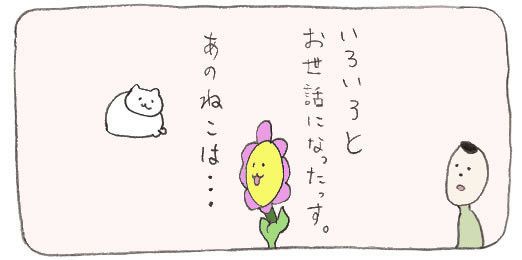 いろいろと
お世話になったっす。
あのねこは・・・